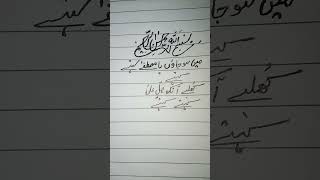 بسم اللہ الرحمن الرحیم
میں سو جاؤں یا مصطفیٰ کہتے
کہتے
کھلے آنکھ صل علی
کہتے کہتے